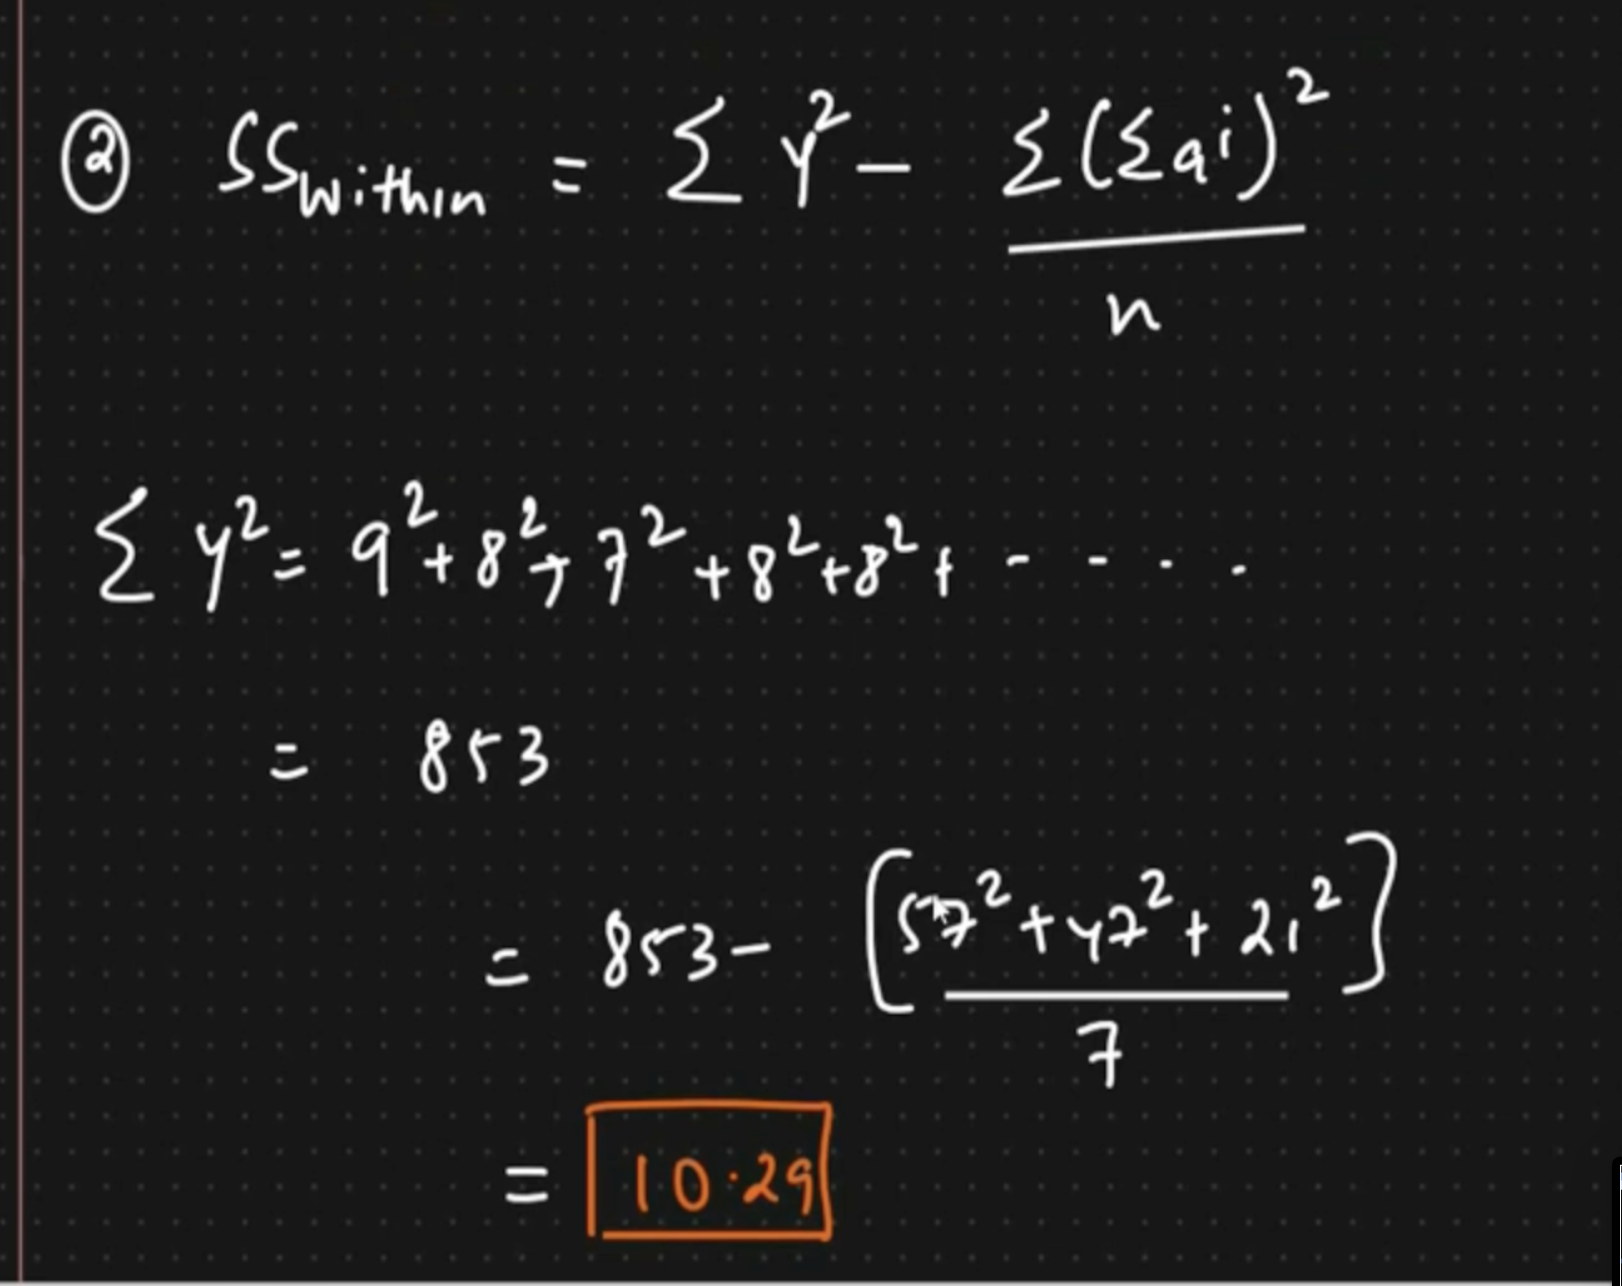 ② SSwithin = Σ y² − Σ(Σai)² / n
Σ y² = 9² + 8² + 7² + 8² + 8² + - - - -
= 853
= 853 − [57² + 47² + 21² / 7]
= 10.29